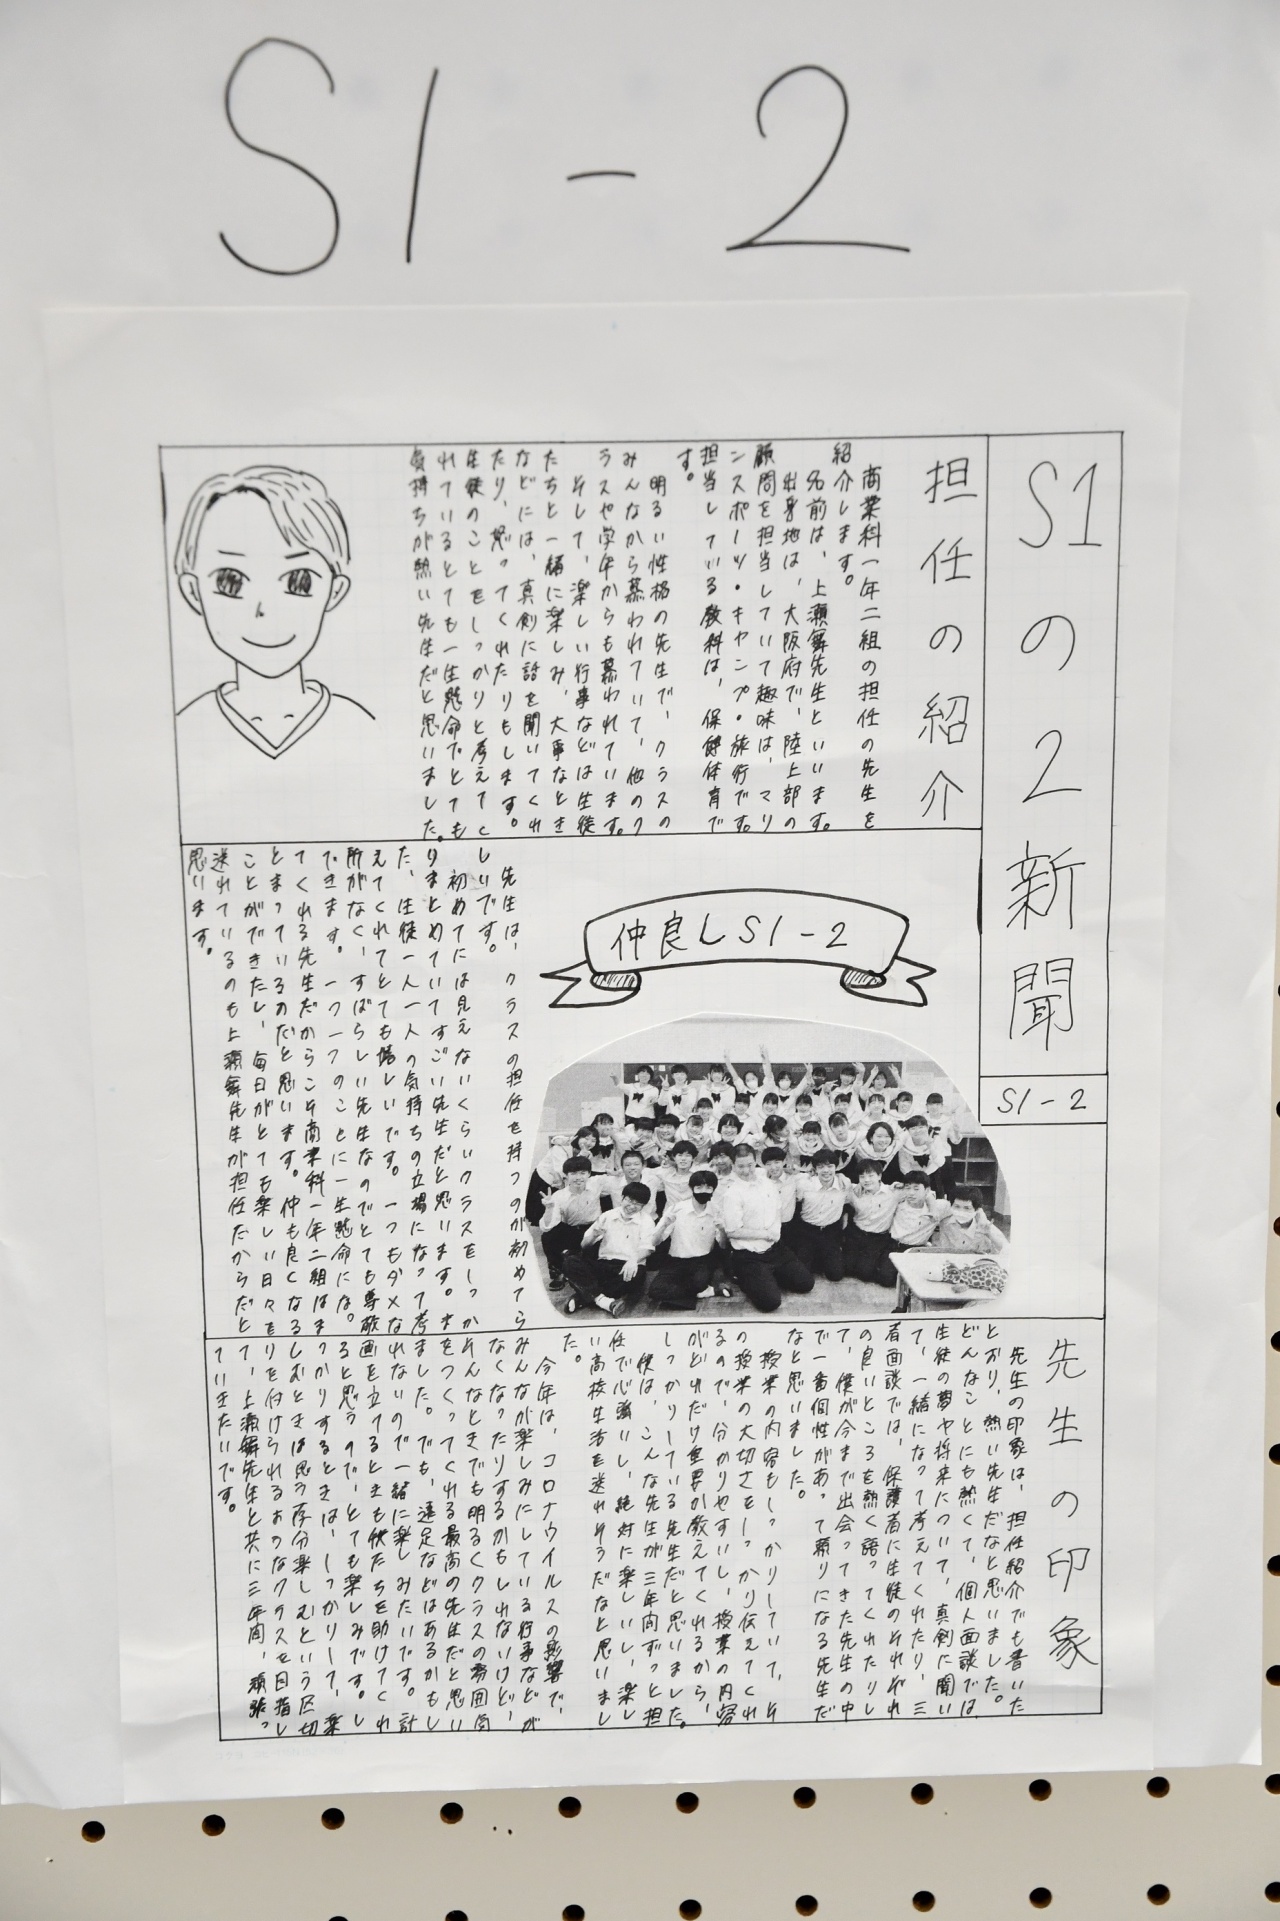 S1-2
S1の2新聞
S1-2
担任の紹介
商業科一年二組の担任の先生を
紹介します。
名前は、上瀬舞先生といいます。
出身地は、大阪府で、陸上部の
顧問を担当していて趣味は、マリ
ンスポーツ・キャンプ・旅行です。
担当している教科は、保健体育で
す。
明るい性格の先生で、クラスの
みんなから慕われていて、他のク
ラスや学年からも慕われています。
そして、楽しい行事などは生徒
たちと一緒に楽しみ、大事なとき
などには、真剣に話を聞いてくれ
たり、怒ってくれたりもします。
生徒のことをしっかりと考えてく
れているとても一生懸命でとても
気持ちが熱い先生だと思いました。
仲良しS1-2
先生は、クラスの担任を持つのが初めてら
しいです。
初めてには見えないくらいクラスをしっか
りまとめていてすごい先生だと思います。ま
た、生徒一人一人の気持ちの立場になって考
えてくれてとても嬉しいです。一つもダメな
所がなく、すばらしい先生なのでとても尊敬
できます。一つ一つのことに一生懸命にな
てくれる先生だからこそ商業科一年二組はま
とまっているのだと思います。仲も良くなる
ことができたし、毎日がとても楽しい日々を
送れているのも上瀬舞先生が担任だからだと
思います。
先生の印象
先生の印象は、担任紹介でも書いた
とおり、熱い先生だなと思いました。
どんなことにも熱くて、個人面談では
生徒の夢や将来について、真剣に聞い
て、一緒になって考えてくれたり、三
者面談では、保護者に生徒のそれぞれ
の良いところを熱く語ってくれたりし
て、僕が今まで出会ってきた先生の中
で一番個性があって頼りになる先生だ
なと思いました。
授業の内容もしっかりしていて、そ
の授業の大切さをしっかり伝えてくれ
るので、分かりやすいし、授業の内容
がどれだけ重要か教えてくれるから、
しっかりしている先生だと思いました。
僕は、こんな先生が三年間ずっと担
任で心強いし、絶対に楽しいし、楽し
い高校生活を送れそうだなと思いまし
た。
今年は、コロナウイルスの影響で、
みんなが楽しみにしている行事などが
なくなったりするかもしれないけど、
そんなときでも明るくクラスの雰囲気
をつくってくれる最高の先生だと思い
ました。でも、遠足などはあるかもし
れないので一緒に楽しみたいです。計
画を立てるときも僕たちを助けてくれ
ると思うので、とても楽しみです。し
っかりするときは、しっかりして、楽
しむときは思う存分楽しむという区切
りを付けられるようなクラスを目指し
て、上瀬舞先生と共に三年間、頑張っ
ていきたいです。